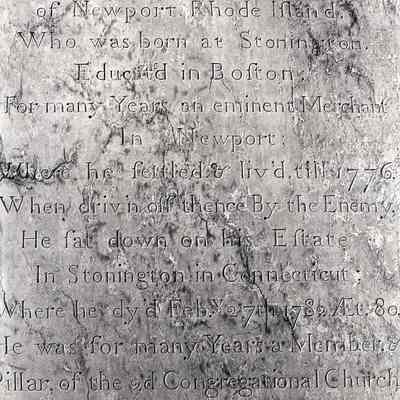 of Newport, Rhode Iſland.
Who was born at Stonington.
Educat'd in Boſton;
For many Years an eminent Merchant
In Newport;
Where he ſettled & liv'd, till 1776.
When driv'n off thence By the Enemy,
He ſat down on his Eſtate
In Stonington in Connecticut;
Where he dy'd Feb.y 27th 1789, Æt. 80.
He was for many Years a Member, &
Pillar, of the 2d Congregational Church